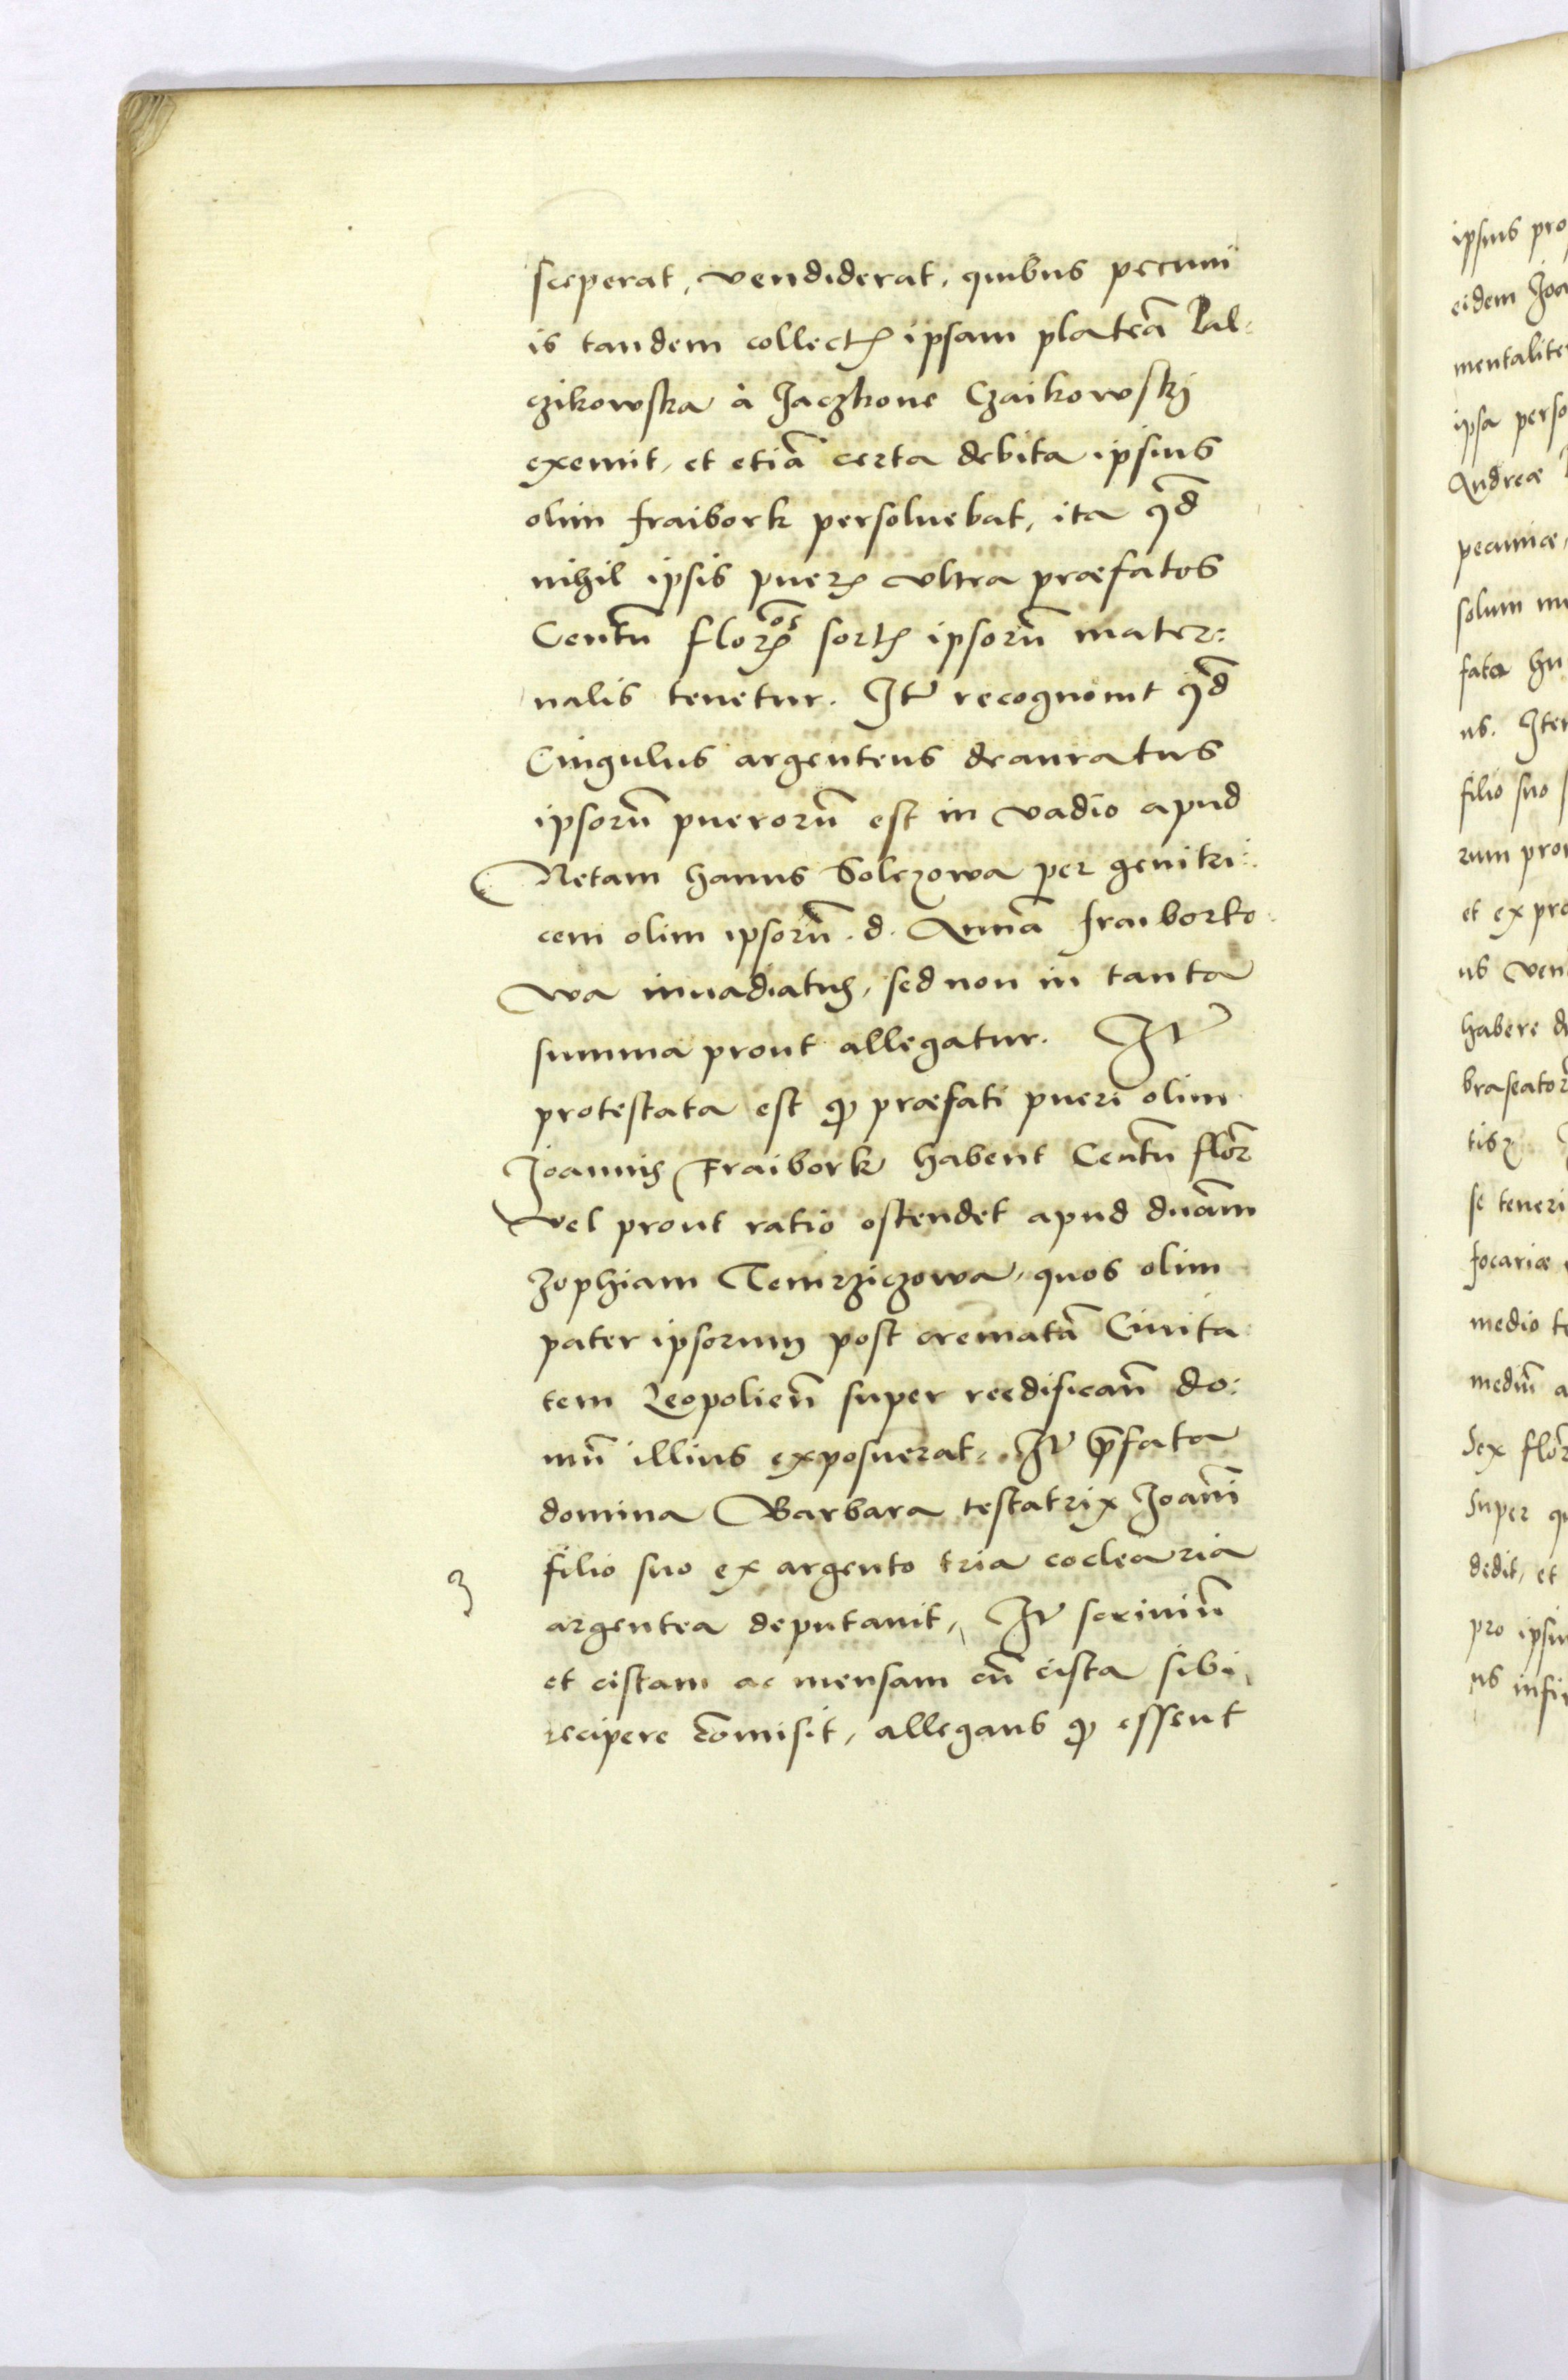 sceperat, vendiderat, quibus pecunii
is tandem collectꝭ ipsam plateā Pal-
czikowska à Jaczkone Czaikowskÿ
exemit, et etiā certa debita ipsius
olim fraibork persoluebat, ita qd̄
nihil ipsis puerꝭ vltra præfatos
Centū florꝭ sortꝭ ipsorū mater:
nalis tenetur. Itē recognouit qd̄
Cingulus argenteus deauratus
ipsorū puerorū est in vadio apud
Netam hanus Solczowa per genitri:
cem olim ipsorū. d. Annā fraiborko
wa inuadiatus, sed non in tanta
summa prout allegatur. Itē
protestata est qȝ præfati pueri olim
Joannis Fraibork habent Centū flor̄
vel prout ratio ostendet apud dnām
Zophiam Temrziczowa, quos olim
pater ipsorum post crematā Ciuita
tem Leopolien̄ super reedifican̄ do:
mū illius exposuerat. Itē p̄fata
domina Barbara testatrix Joan̄i
filio suo ex argento tria coclearia
3
argentea deputauit, Itē scriniū
et cistam ac mensam cū cista sibi
recipere com̄isit, allegans qȝ essent
ipsius pro
eidem Joa
mentalite
ipsa perso
Andreæ
pecuniæ,
solum
fata
us. Ite
filio suo
rum pro
et ex pre
us ven
habere
braseator
tisꝫ
se teneri
focariæ
medio te
mediū a
Sex flor
Super qu
dedit, et
pro ipsiu
us infi